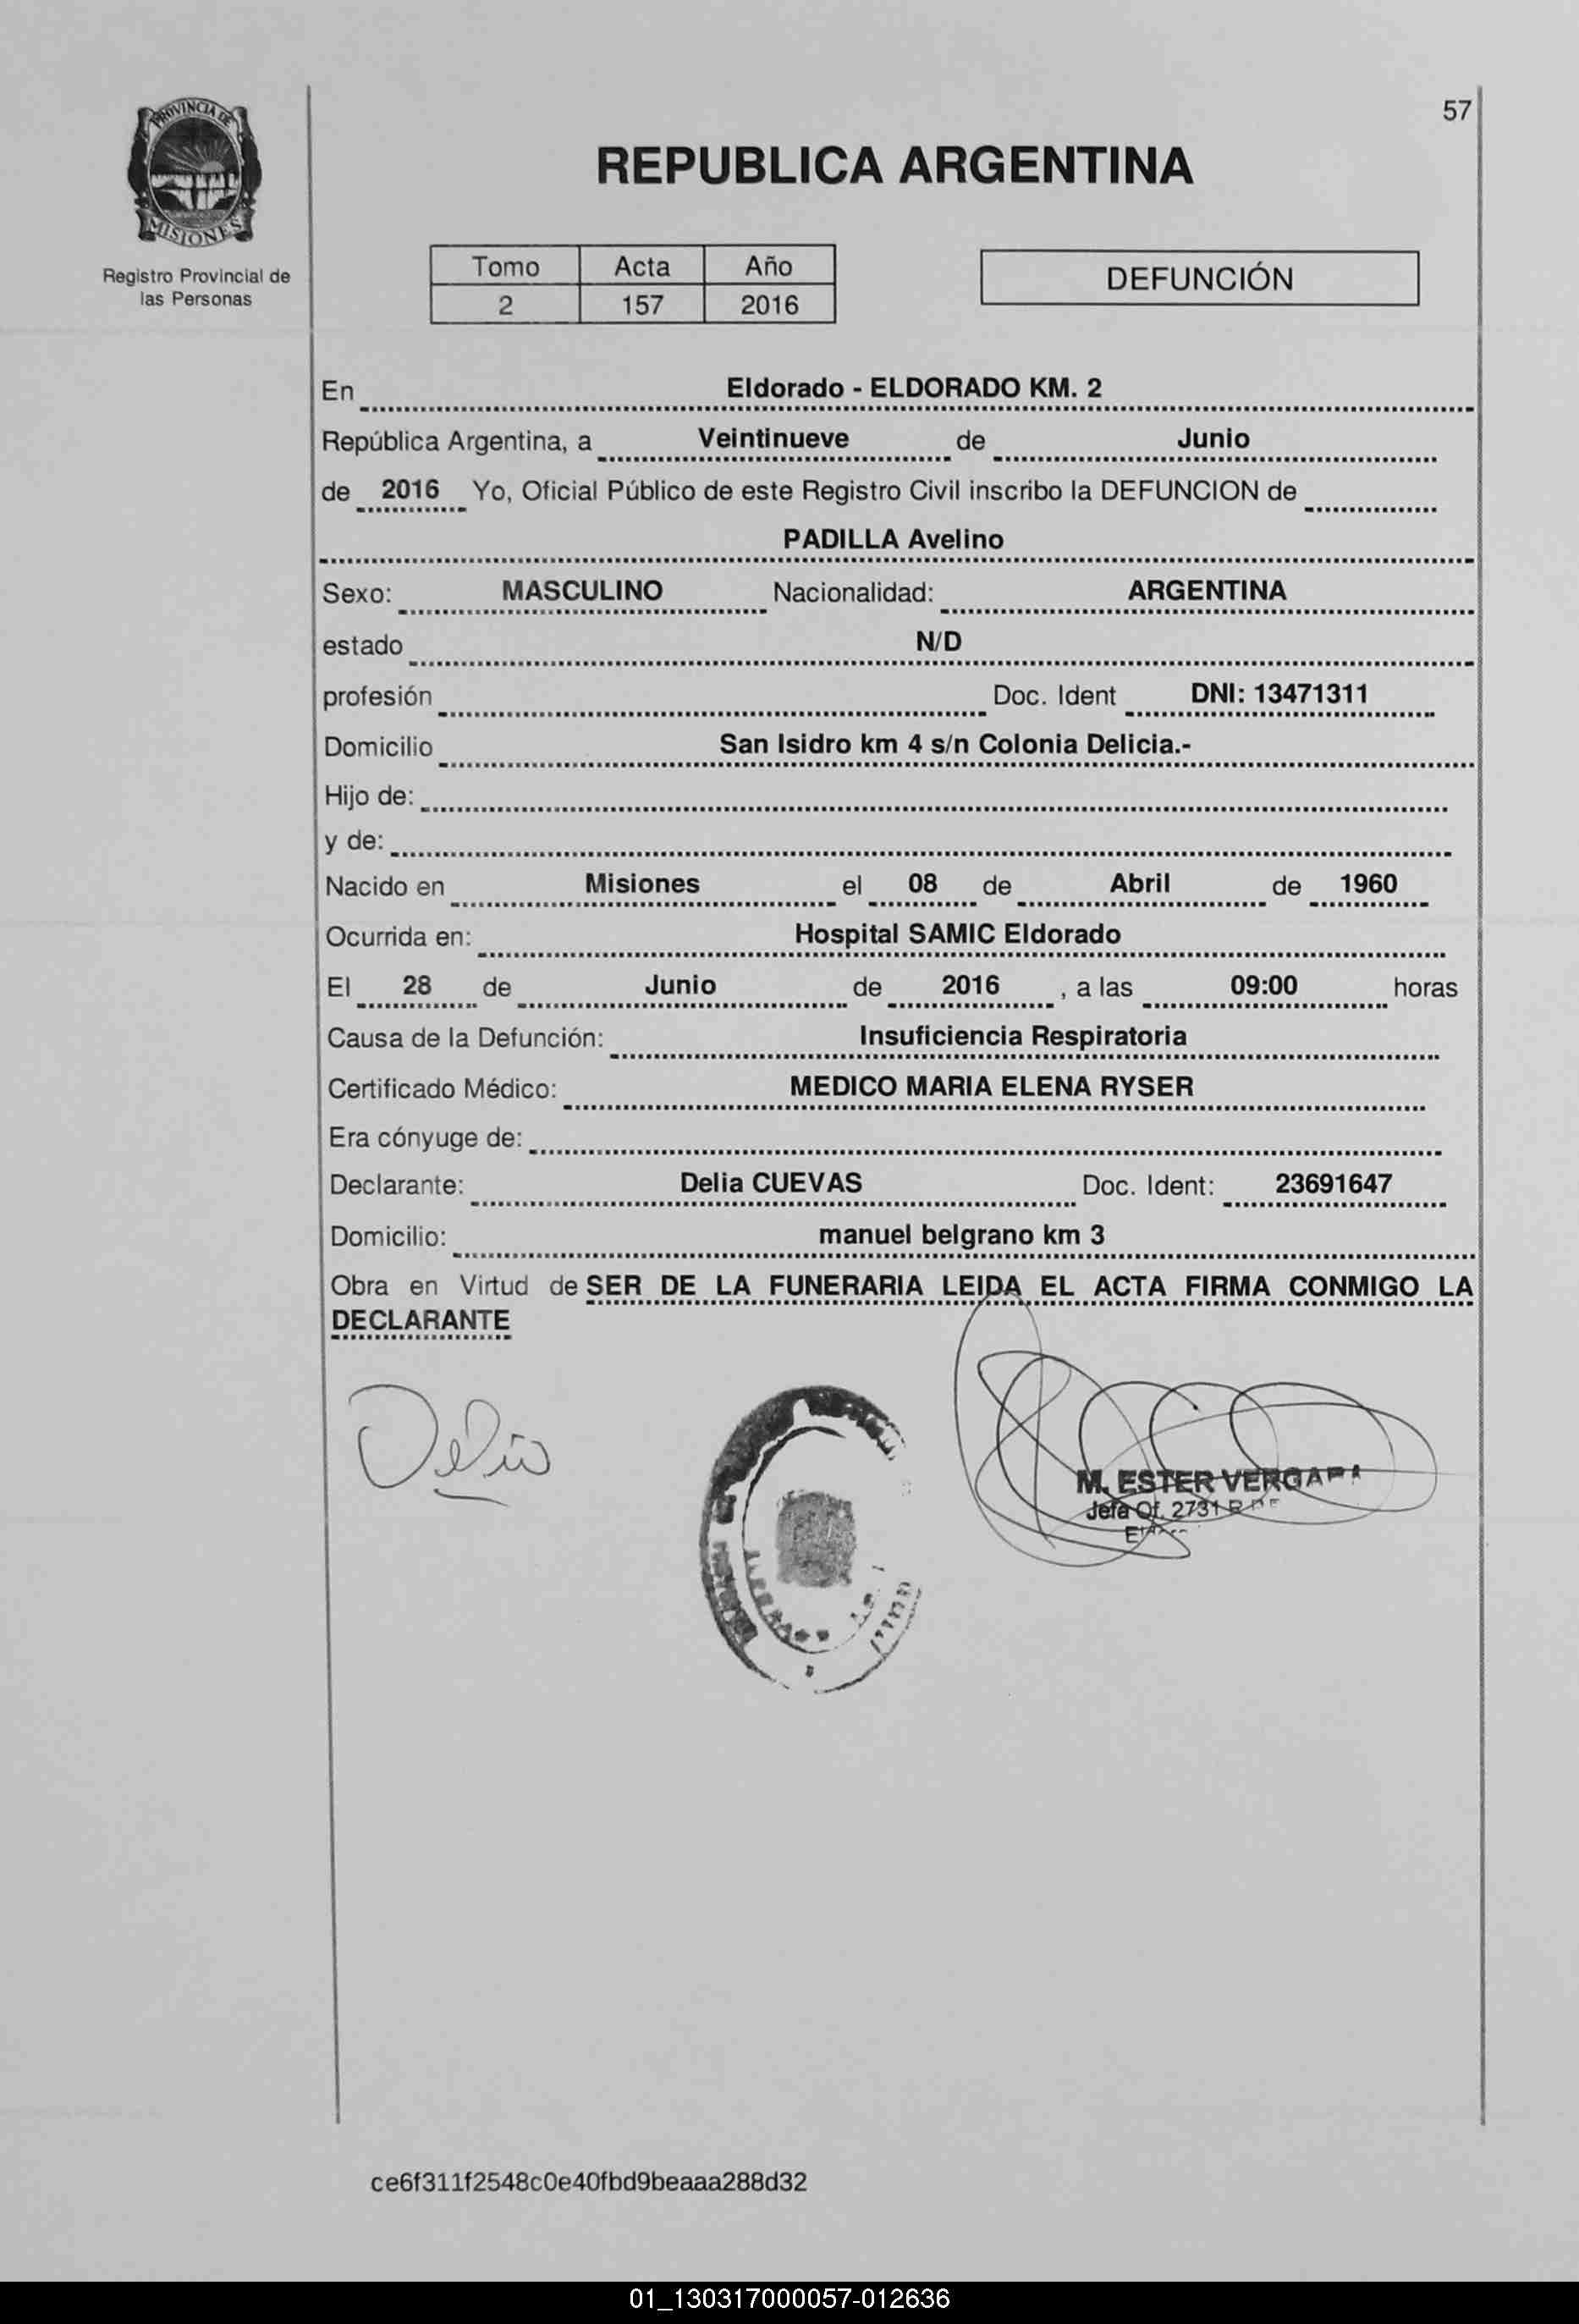 57
PROVINCIA DE
MISIONES
Registro Provincial de
las Personas
REPUBLICA ARGENTINA
Tomo Acta Año
2 157 2016
DEFUNCIÓN
En Eldorado - ELDORADO KM. 2
República Argentina, a Veintinueve de Junio
de 2016 Yo, Oficial Público de este Registro Civil inscribo la DEFUNCION de
PADILLA Avelino
Sexo: MASCULINO Nacionalidad: ARGENTINA
estado N/D
profesión Doc. Ident DNI: 13471311
Domicilio San Isidro km 4 s/n Colonia Delicia.-
Hijo de:
y de:
Nacido en Misiones el 08 de Abril de 1960
Ocurrida en: Hospital SAMIC Eldorado
El 28 de Junio de 2016 , a las 09:00 horas
Causa de la Defunción: Insuficiencia Respiratoria
Certificado Médico: MEDICO MARIA ELENA RYSER
Era cónyuge de:
Declarante: Delia CUEVAS Doc. Ident: 23691647
Domicilio: manuel belgrano km 3
Obra en Virtud de SER DE LA FUNERARIA LEIDA EL ACTA FIRMA CONMIGO LA
DECLARANTE
Delia
M. ESTER VERGARA
Jefa Of. 2731
ce6f311f2548c0e40fbd9beaaa288d32
01_130317000057-012636